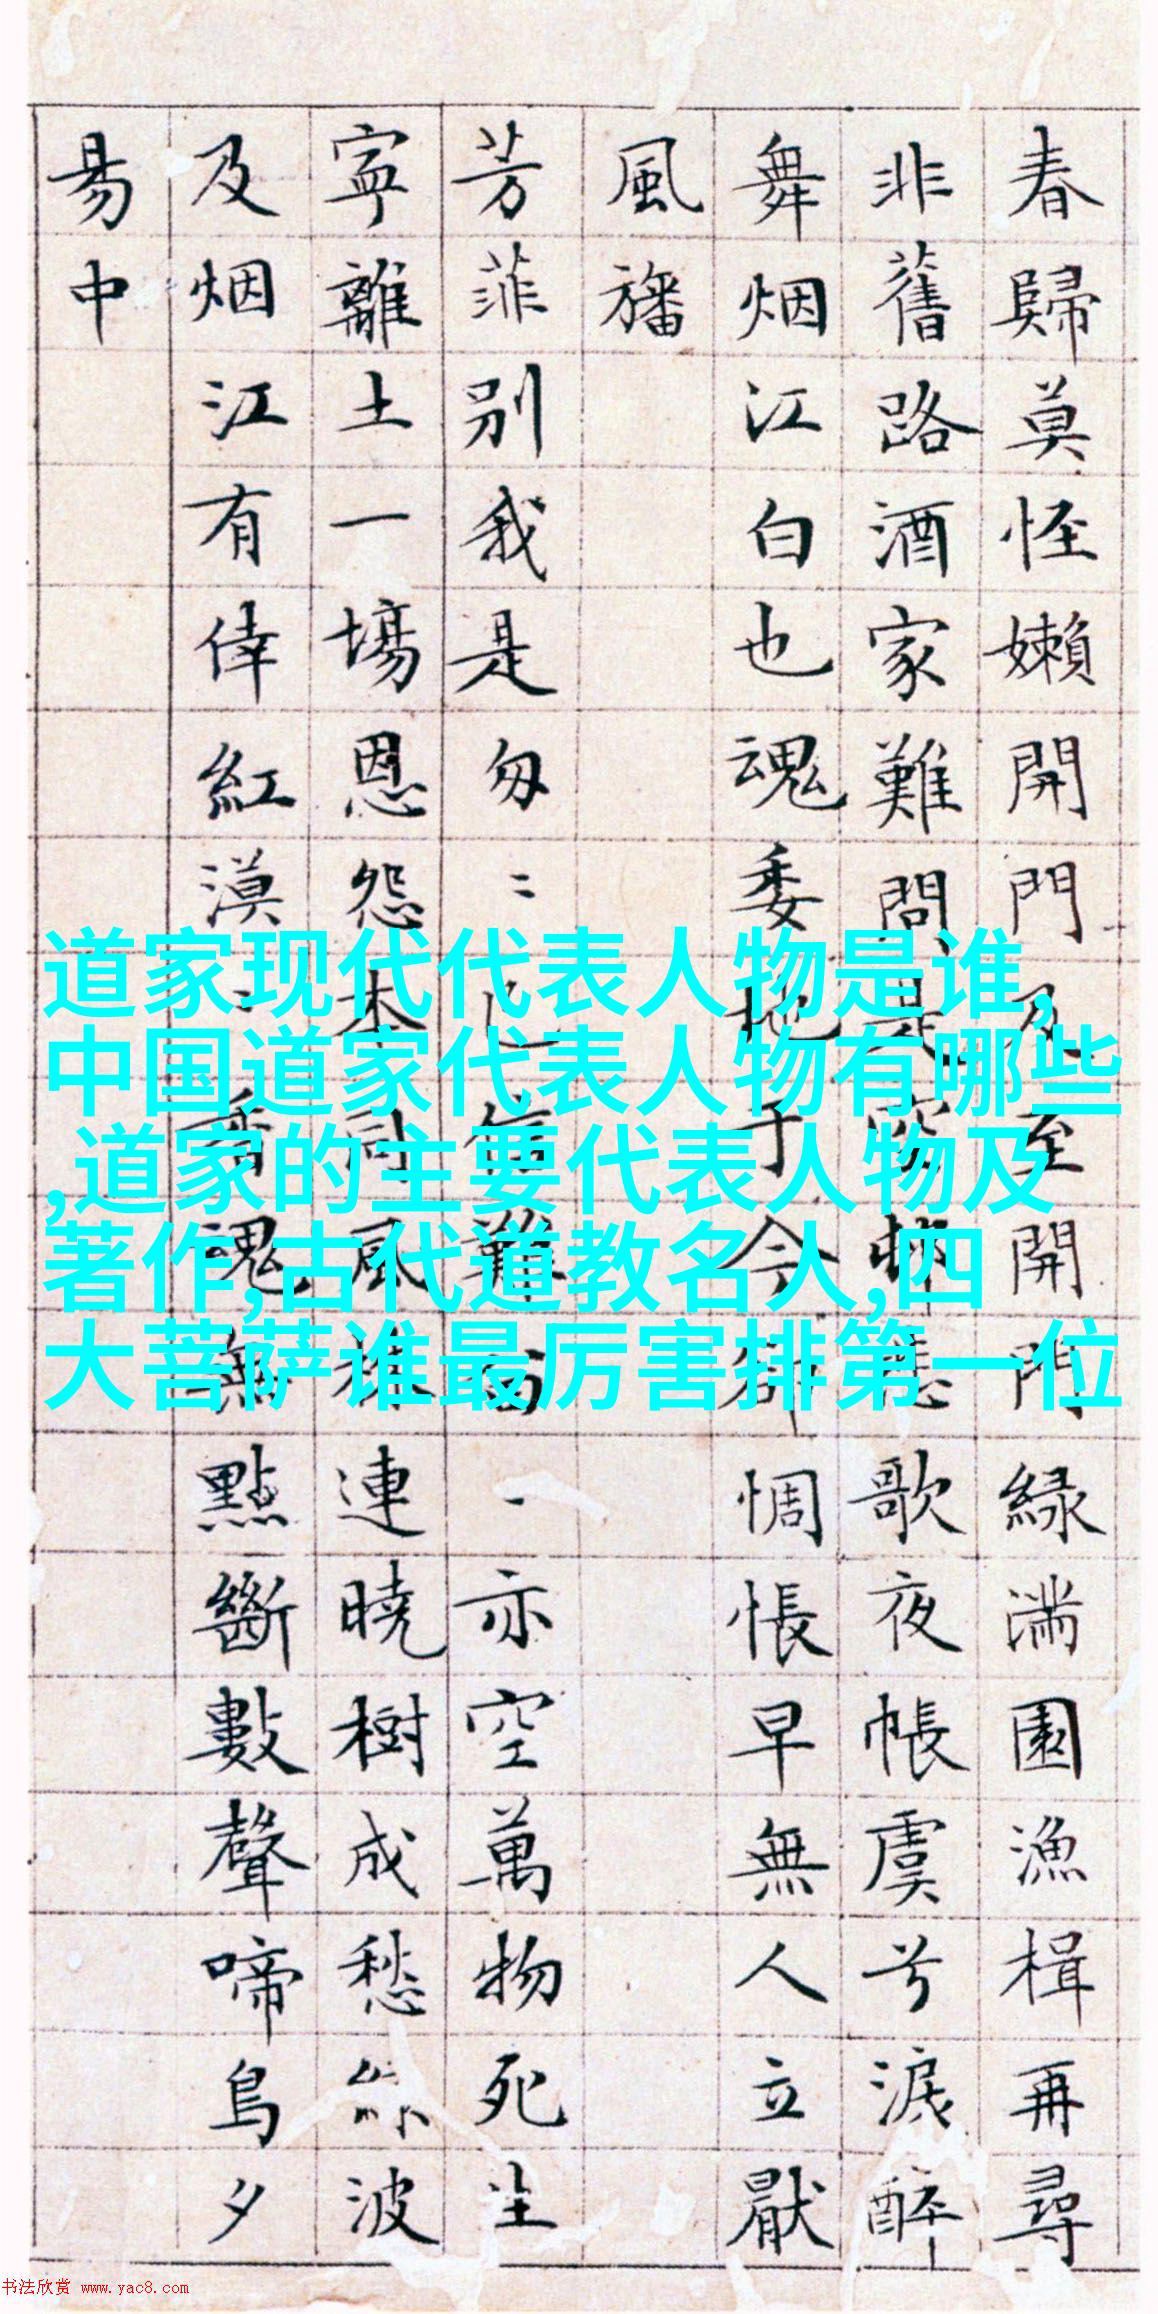 春歸莫怪嬾開門及至開門緑滿園漁楫再尋
非舊路酒家難問是歌夜帳虞兮淚醉
舞烟江白也魂委地于今辟惆悵早無人立厭
風旛
芳菲别我是匆〻難亦空萬物死生
寧離土一場恩怨本同風連曉樹成愁波
及烟江有倖紅漠香魂無點斷數聲啼鳥夕
易中
道家现代代表人物是谁,
中国道家代表人物有哪些
,道家的主要代表人物及
著作,古代道教名人,四
大菩萨谁最厉害排第一位
书法欣赏 www.yac8.com